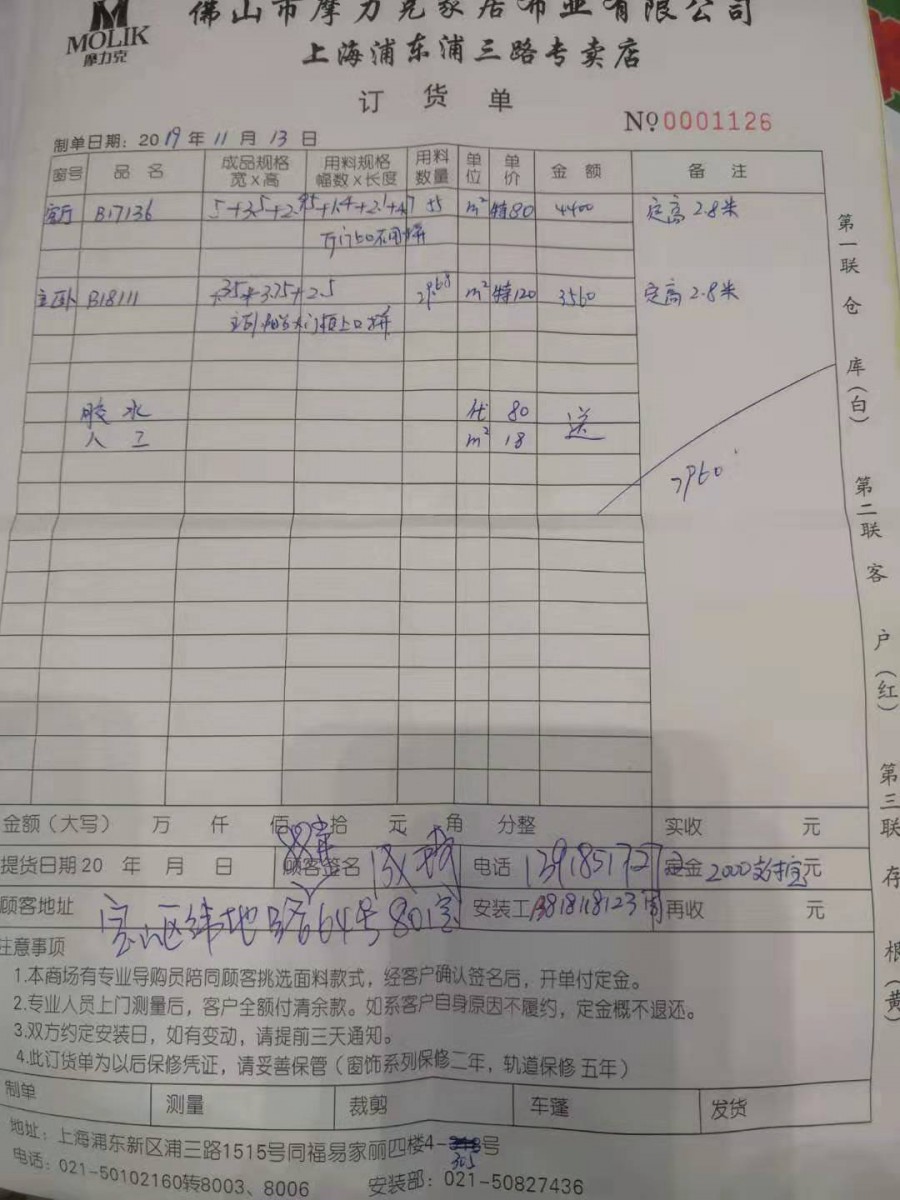 MOLIK
摩力克
佛山市摩力克家居布业有限公司
上海浦东浦三路专卖店
订货单
No 0001126
制单日期：2019年11月13日
窗号 品名 成品规格 宽x高 用料规格 幅数x长度 用料数量 单位 单价 金额 备注
客厅 B17136 5+3.5+2.95+1.4+2.1+4.7 55 m² 特80 4400 定高2.8米
主卧 B18111 3.75+2.5 29.68 m² 特120 3560 定高2.8米
胶水 80 送
人工 m² 18
7960
第一联仓库（白） 第二联客户（红） 第三联存根（黄）
金额（大写） 万 仟 佰 拾 元 角 分整 实收 元
提货日期20 年 月 日 顾客签名 电话 定金2000支付宝元
顾客地址 宝山区纬地路664号801室 安装工 13818118123周 再收 元
注意事项
1.本商场有专业导购员陪同顾客挑选面料款式，经客户确认签名后，开单付定金。
2.专业人员上门测量后，客户全额付清余款。如系客户自身原因不履约，定金概不退还。
3.双方约定安装日，如有变动，请提前三天通知。
4.此订货单为以后保修凭证，请妥善保管（窗饰系列保修二年，轨道保修五年）
制单 测量 裁剪 车篷 发货
地址：上海浦东新区浦三路1515号同福易家丽四楼4-305号
电话：021-50102160转8003、8006 安装部：021-50827436